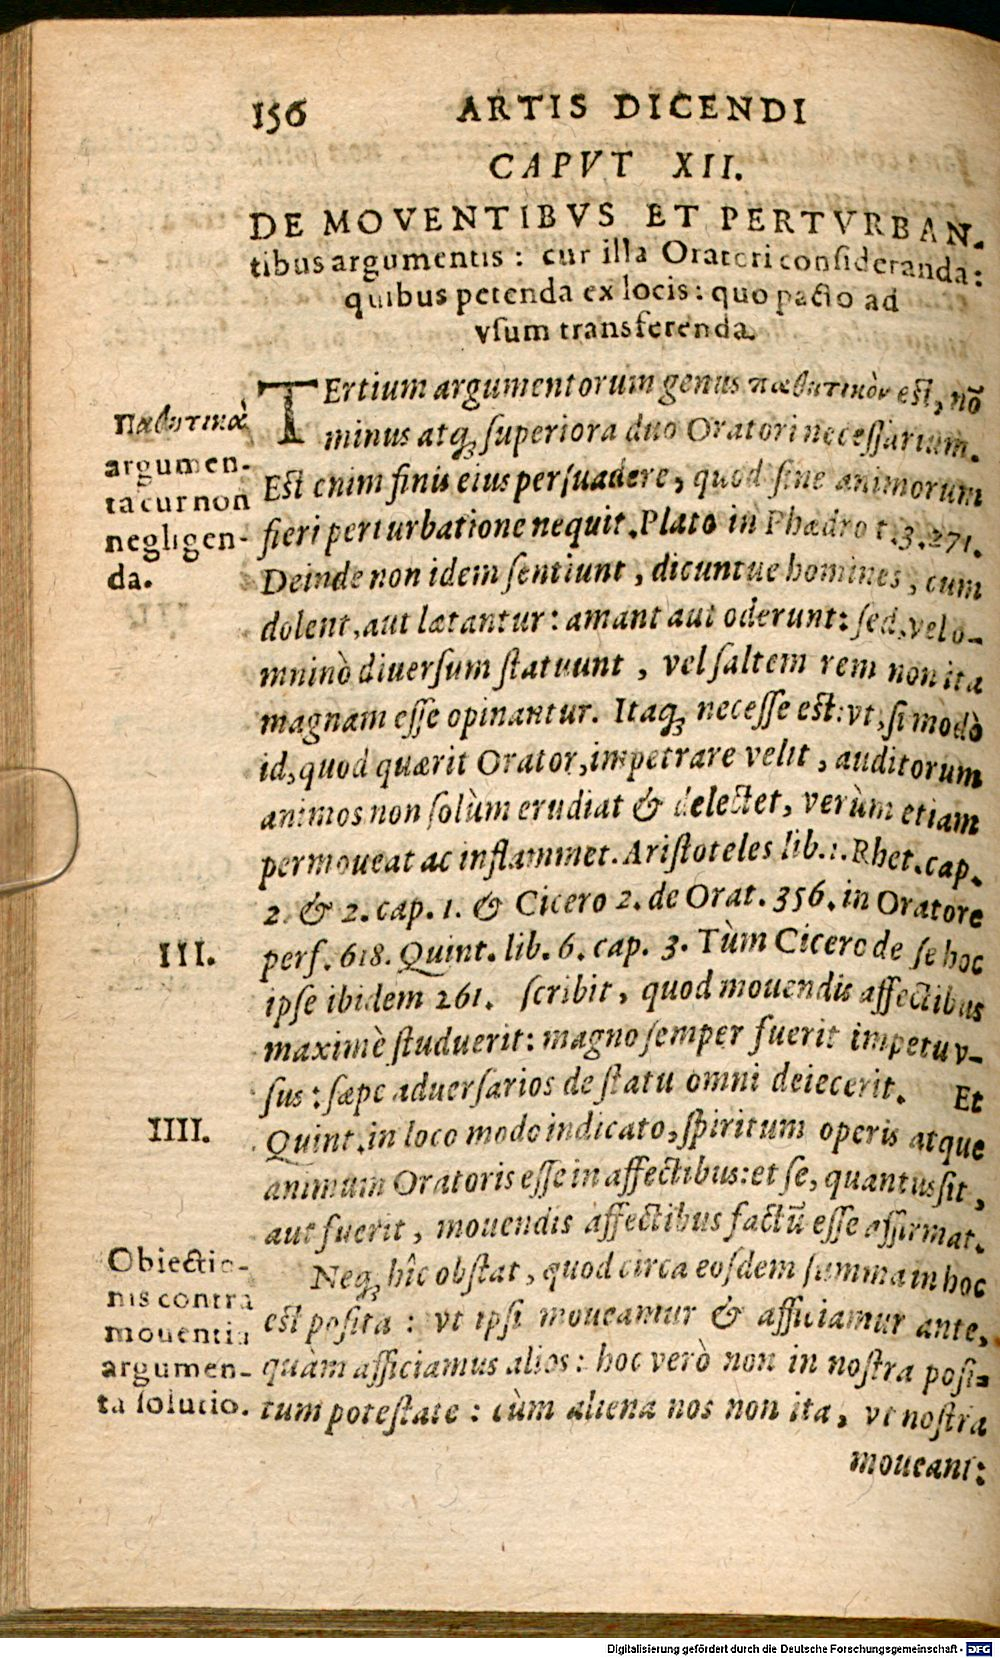 156 ARTIS DICENDI
CAPVT XII.
DE MOVENTIBVS ET PERTVRBAN-
tibus argumentis: cur illa Oratori consideranda:
quibus petenda ex locis: quo pacto ad
vsum transferenda.
TErtium argumentorum genus παθητικὸν est, nō
minus atq; superiora duo Oratori necessarium.
Est enim finis eius persuadere, quod sine animorum
fieri perturbatione nequit. Plato in Phædro t. 3. 271.
Deinde non idem sentiunt, dicuntue homines, cum
dolent, aut lætantur: amant aut oderunt: sed, vel o-
mninò diuersum statuunt, vel saltem rem non ita
magnam esse opinantur. Itaq; necesse est: vt, si modò
id, quod quærit Orator, impetrare velit, auditorum
animos non solùm erudiat & delectet, verùm etiam
permoueat ac inflammet. Aristoteles lib. 1. Rhet. cap.
2. & 2. cap. 1. & Cicero 2. de Orat. 356. in Oratore
perf. 618. Quint. lib. 6. cap. 3. Tùm Cicero de se hoc
ipse ibidem 261. scribit, quod mouendis affectibus
maximè studuerit: magno semper fuerit impetu v-
sus: sæpe aduersarios de statu omni deiecerit. Et
Quint. in loco modo indicato, spiritum operis atque
animum Oratoris esse in affectibus: et se, quantus sit,
aut fuerit, mouendis affectibus factū esse affirmat.
Neq; hîc obstat, quod circa eosdem summa in hoc
est posita: vt ipsi moueamur & afficiamur ante,
quàm afficiamus alios: hoc verò non in nostra posi-
tum potestate: cùm aliena nos non ita, vt nostra
moueant:
Παθητικὰ
argumen-
ta cur non
negligen-
da.
III.
IIII.
Obiectio-
nis contra
mouentia
argumen-
ta solutio.
Digitalisierung gefördert durch die Deutsche Forschungsgemeinschaft - DFG